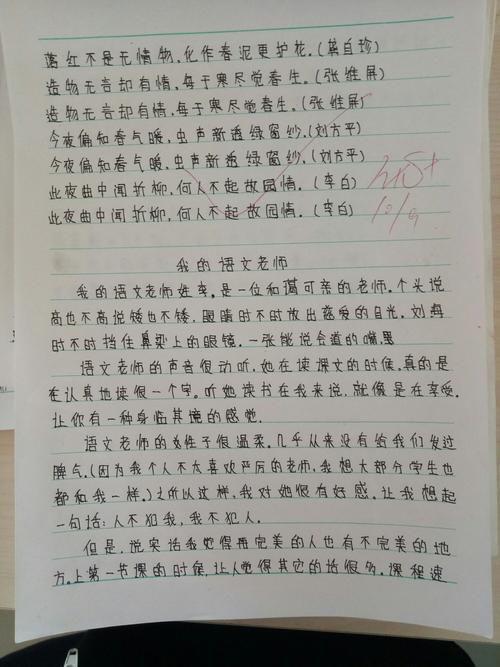 落红不是无情物,化作春泥更护花。(龚自珍)
造物无言却有情,每于寒尽觉春生。(张维屏)
造物无言却有情,每于寒尽觉春生。(张维屏)
今夜偏知春气暖,虫声新透绿窗纱。(刘方平)
今夜偏知春气暖,虫声新透绿窗纱。(刘方平)
此夜曲中闻折柳,何人不起故园情。(李白)
此夜曲中闻折柳,何人不起故园情。(李白)
10/9
我的语文老师
我的语文老师姓李。是一位和蔼可亲的老师。个头说
高也不高说矮也不矮,眼睛时不时放出慈爱的目光。刘海
时不时挡住鼻梁上的眼镜。一张能说会道的嘴
语文老师的声音很动听,她在读课文的时候。真的是
在认真地读很一个字。听她读书在我来说,就像是在享受。
让你有一种身临其境的感觉.
语文老师的性子很温柔。几乎从来没有给我们发过
脾气。(因为我个人不太喜欢严厉的老师,我想大部分学生也
都和我一样。)之所以这样,我对她很有好感。让我想起
一句话:人不犯我,我不犯人.
但是,说实话我觉得再完美的人也有不完美的地
方。上第一节课的时候,让人觉得其它的话很多。课程速